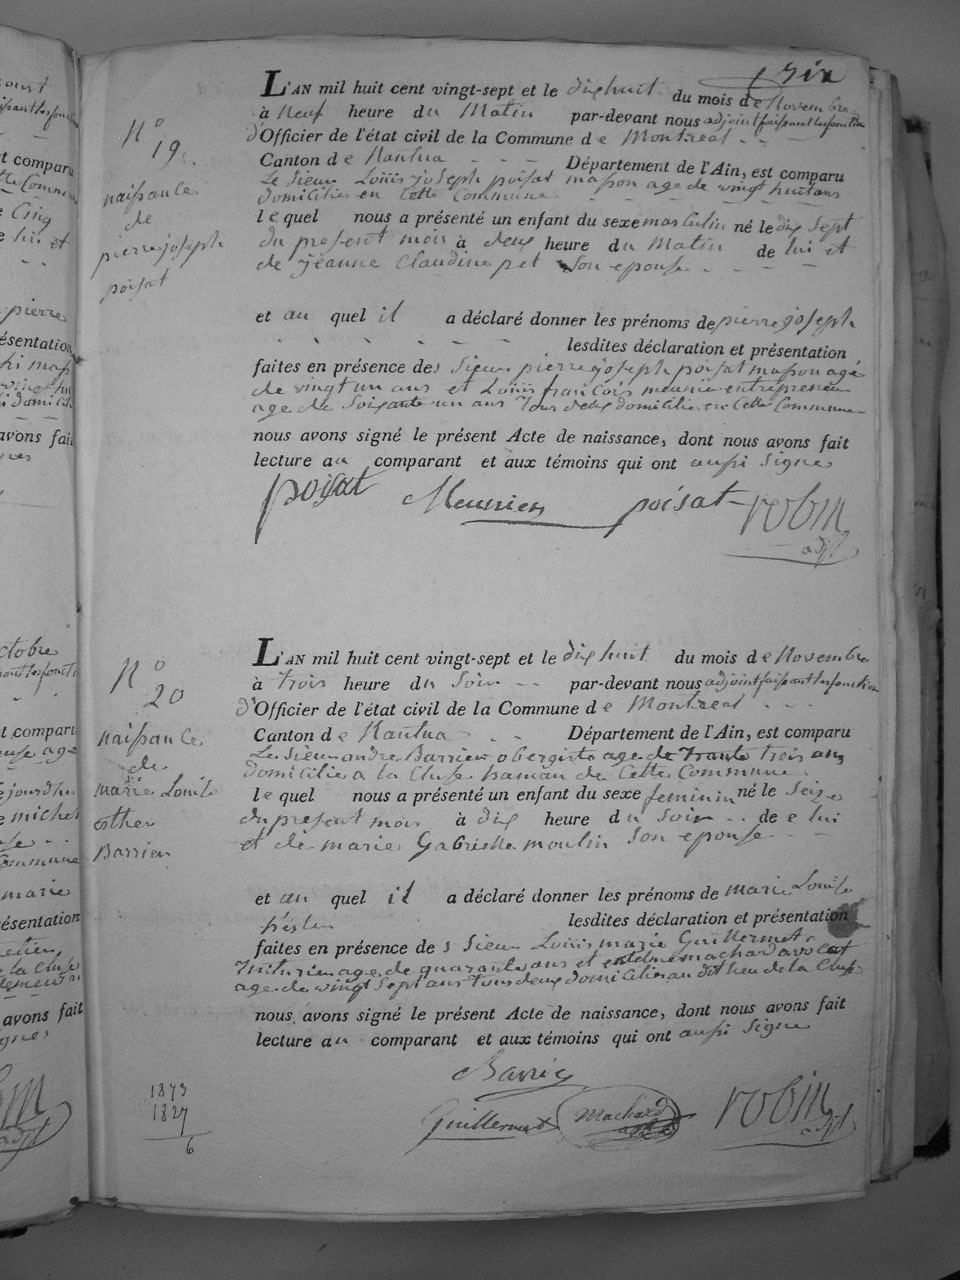 six
N° 19.
naissance
de
pierre joseph
poisat
L'AN mil huit cent vingt-sept et le dix huit du mois de Novembre
à Neuf heure du Matin par-devant nous adjoint faissant les fonction
d'Officier de l'état civil de la Commune de Montreal
Canton de Nantua Département de l'Ain, est comparu
Le Sieur Loüis joseph poisat masson age de vingt huit ans
domicilie en Cette Commune
lequel nous a présenté un enfant du sexe masculin né le dix Sept
du present mois à deux heure du Matin de lui et
de jeanne Claudine pet Son epouse
et au quel il a déclaré donner les prénoms de pierre joseph
lesdites déclaration et présentation
faites en présence des Sieur pierre joseph poisat masson age
de vingt un ans et Loüis francois meunier entrepreneur
age de Soixante un ans Tous deux domicilie en Cette Commune
nous avons signé le présent Acte de naissance, dont nous avons fait
lecture au comparant et aux témoins qui ont aussi Signe
poisat Meunier poisat robin
adjt
N° 20
naissance
de
marie Louise
Esther
Barrier
L'AN mil huit cent vingt-sept et le dix huit du mois de Novembre
à trois heure du Soir par-devant nous adjoint faissant les fonction
d'Officier de l'état civil de la Commune de Montreal
Canton de Nantua Département de l'Ain, est comparu
Le Sieur andre Barrier obergiste age de trante trois ans
domicilie a la Cluse hamau de Cette Commune
lequel nous a présenté un enfant du sexe feminin né le Seize
du present mois à dix heure du Soir de lui
et de marie Gabrielle moulin Son epouse
et au quel il a déclaré donner les prénoms de marie Louise
lesdites déclaration et présentation
faites en présence des Sieur Loüis marie Guillermet
age de quarante ans et machard avocat
age de vingt Sept ans tous deux domicilie au dit lieu de la Cluse
nous avons signé le présent Acte de naissance, dont nous avons fait
lecture au comparant et aux témoins qui ont aussi Signe
Barrier
Guillermet Machard robin
adjt
1873
1827
6